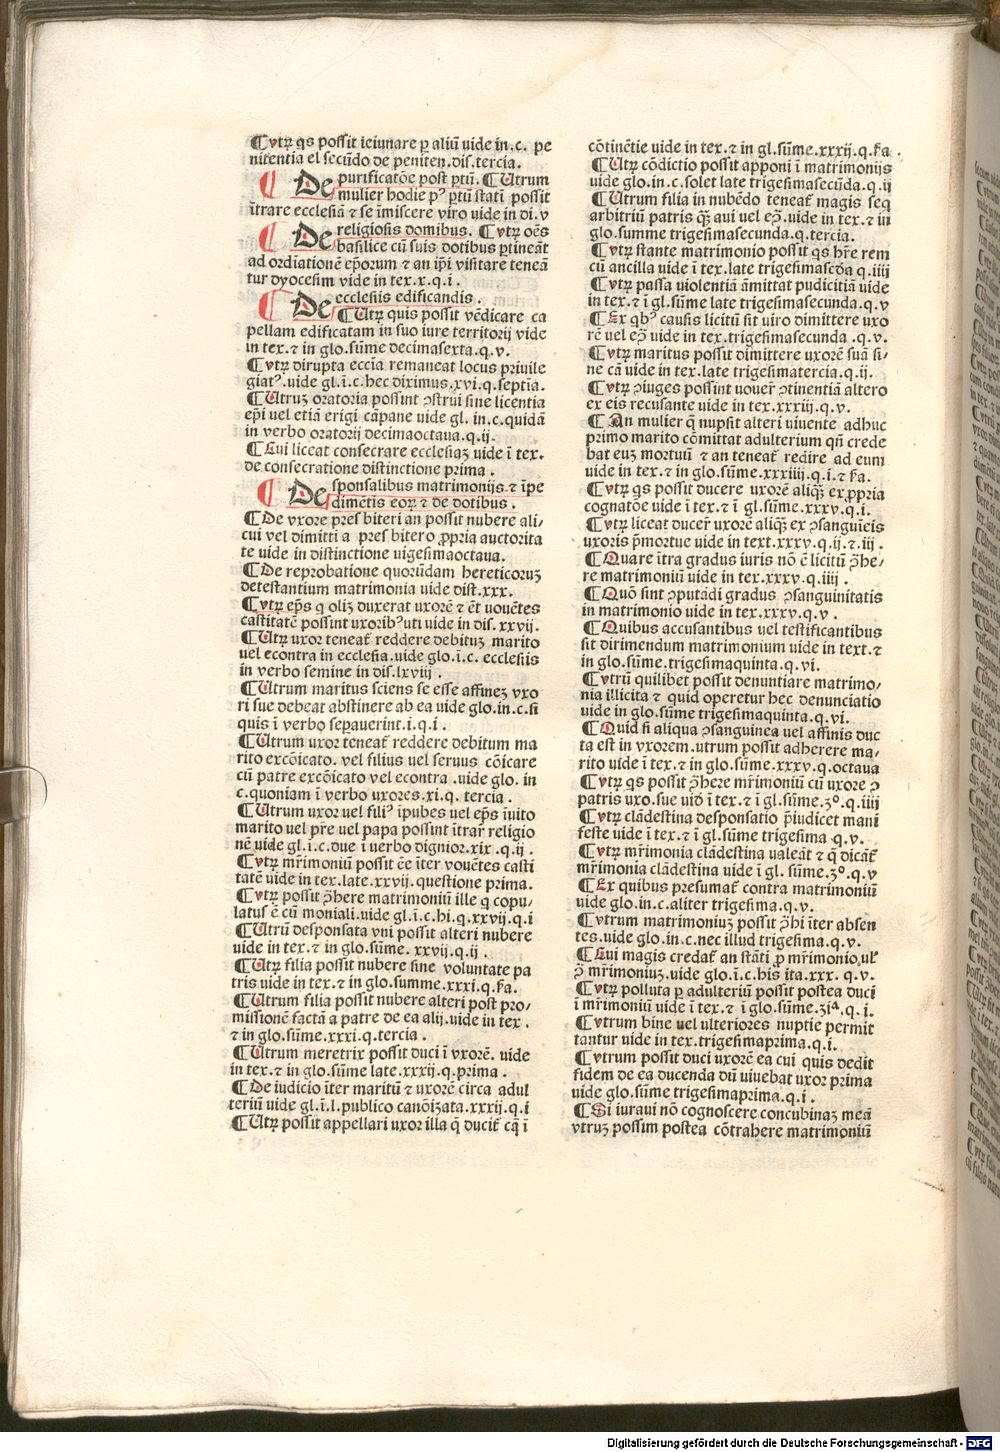 ¶Vtꝝ qs possit ieiunare ꝑ aliū uide in.c. pe
nitentia el secūdo de peniten.dis.tercia.
¶ De purificatōe post ꝑtū. ¶Utrum
mulier hodie pꝰ ꝑtū statī possit
ītrare ecclesiā ⁊ se īmiscere viro uide in di.v
¶ De religiosis domibus. ¶Vtꝝ oēs
basilice cū suis dotibus ꝑtineāt
ad ordīationē ep̄orum ⁊ an ip̄i visitare teneā
tur dyocesim vide in tex.x.q.i.
¶ De ecclesiis edificandis.
¶Utꝝ quis possit vēdicare ca
pellam edificatam in suo iure territorij vide
in tex.⁊ in glo.sūme decimasexta.q.v.
¶Vtꝝ dirupta ecc̄ia remaneat locus priuile
giatꝰ.uide gl.ī.c.hec diximus.xvi.q.septīa.
¶Utruꝫ oratoria possint ꝯstrui sine licentia
ep̄i vel etiā erigi cāpane uide gl. in.c.quidā
in verbo oratorij decimaoctaua.q.ij.
¶Cui liceat consecrare ecclesiaꝫ uide ī tex.
de consecratione distinctione prima.
¶ De sponsalibus matrimonijs.⁊ īpe
dimētis eoꝝ ⁊ de dotibus.
¶De vxore pres biteri an possit nubere ali⸗
cui vel dimitti a pres bitero ꝓpria auctorita
te uide in distinctione vigesimaoctaua.
¶De reprobatione quorūdam hereticoruꝫ
detestantium matrimonia vide dist.xxx.
¶Vtꝝ ep̄s q̄ olīꝫ duxerat uxorē ⁊ ēt uouētes
castitatē possint uxoribꝰuti vide in dis.xxvij.
¶Utꝝ uxor teneat᷑ reddere debituꝫ marito
vel econtra in ecclesia.uide glo.ī.c. ecclesiis
in verbo semine in dis.lxviij.
¶Utrum maritus sciens se esse affineꝫ vxo
ri sue debeat abstinere ab ea uide glo.in.c.si
quis ī verbo seꝑauerint.i.q.i.
¶Utrum uxor teneat᷑ reddere debitum ma
rito excōicato. vel filius vel seruus cōicare
cū patre excōicato vel econtra .uide glo. in
c.quoniam ī verbo uxores.xi.q. tercia.
¶Utrum uxor uel filiꝰ īpubes uel ep̄s īuito
marito vel pr̄e vel papa possint ītrar̄ religio
nē uide gl.ī.c.due ī uerbo dignior.xix.q.ij.
¶Vtꝝ mr̄imoniū possit ēe īter vouētes casti
tatē uide in tex.late.xxvij.questione prima.
¶Vtꝝ possit ꝯhere matrimoniū ille q̄ copu⸗
latus ē cū moniali.uide gl.ī.c.hi.q.xxvij.q.i
¶Utrū desponsata vni possit alteri nubere
uide in tex.⁊ in glo.sūme. xxvij.q.ij.
¶Utꝝ filia possit nubere sine voluntate pa
tris uide in tex.⁊ in glo.summe.xxxi.q.s̄a.
¶Utrum filia possit nubere alteri post pro⸗
missionē factā a patre de ea alij.uide in tex.
⁊ in glo.sūme.xxxi.q.tercia.
¶Utrum meretrix possit duci ī vxorē. uide
in tex.⁊ in glo.sūme late.xxxij.q.prima.
¶De iudicio īter maritū ⁊ uxorē circa adul
teriū uide gl.ī.l.publico canōizata.xxxij.q.i
¶Utꝝ possit appellari uxor illa q̄ ducit᷑ cā ī
cōtinētie uide in tex.⁊ in gl.sūme.xxxij.q.s̄a.
¶Utꝝ cōdictio possit apponi ī matrimonijs
uide glo.in.c.solet late trigesimasecūda.q.ij
¶Utrum filia in nubēdo teneat᷑ magis seq̄
arbitriū patris q̄ꝫ aui uel eꝯ̄.uide in tex.⁊ in
glo.summe trigesimasecunda.q.tercia.
¶Vtꝝ stante matrimonio possit qs h̄re rem
cū ancilla vide ī tex.late trigesimascd̄a q.iiij
¶Vtꝝ passa uiolentiā āmittat pudicitiā uide
in tex.⁊ ī gl.sūme late trigesimasecunda.q.v
¶Ex qbꝰ causis licitū sit viro dimittere uxo
rē uel eꝯ̄ vide in tex.trigesimasecunda .q.v.
¶Vtꝝ maritus possit dimittere uxorē suā si⸗
ne cā vide in tex.late trigesimatercia.q.ij.
¶Vtꝝ ꝯiuges possint uouer̄ ꝯtinentiā altero
ex eis recusante vide in tex.xxxiij.q.v.
¶An mulier q̄ nupsit alteri uiuente adhuc
primo marito cōmittat adulterium qn̄ crede
bat euꝫ mortuū ⁊ an teneat᷑ redire ad eum
uide in tex.⁊ in glo.sūme.xxxiiij.q.i.⁊ s̄a.
¶Vtꝝ qs possit ducere uxorē aliq̄ꝫ ex ꝓpria
cognatōe vide ī tex.⁊ ī gl.sūme.xxxv.q.i.
¶Vtꝝ liceat ducer̄ uxorē aliq̄ꝫ ex ꝯsanguīeis
uxoris p̄mortue uide in text.xxxv.q.ij.⁊.iij.
¶Quare ītra gradus iuris nō ē licitū ꝯ̄he⸗
re matrimoniū uide in tex.xxxv.q.iiij.
¶Quō sint ꝯputādi gradus ꝯsanguinitatis
in matrimonio vide in tex.xxxv.q.v.
¶Quibus accusantibus uel testificantibus
sit dirimendum matrimonium uide in text.⁊
in glo.sūme.trigesimaquinta.q.vi.
¶Vtrū quilibet possit denuntiare matrimo⸗
nia illicita ⁊ quid operetur hec denunciatio
uide in glo.sūme trigesimaquinta.q.vi.
¶Quid si aliqua ꝯsanguinea uel affinis duc
ta est in vxorem.utrum possit adherere ma⸗
rito vide ī tex.⁊ in glo.sūme.xxxv.q.octaua
¶Vtꝝ qs possit ꝯ̄here mr̄imoniū cū uxore ꝯ
patris uxo.sue uid̄ ī tex.⁊ ī gl.sūme.3º.q.iiij
¶Vtꝝ clādestina desponsatio p̄iudicet mani
feste uide ī tex.⁊ ī gl.sūme trigesima.q.v.
¶Vtꝝ mr̄imonia clādestina valeāt ⁊ q̄ dicāt᷑
mr̄imonia clādestina uide ī gl. sūme.3º.q.v
¶Ex quibus presumat᷑ contra matrimoniū
uide glo.in.c.aliter trigesima.q.v.
¶Vtrum matrimoniuꝫ possit ꝯ̄hi īter absen
tes.uide glo.in.c.nec illud trigesima.q.v.
¶Cui magis credat᷑ an stāti ꝓ mr̄imonio.ul̓
ꝯ̄ mr̄imoniuꝫ.uide glo.ī.c.his ita.xxx. q.v.
¶Vtꝝ polluta ꝑ adulteriū possit postea duci
ī mr̄imoniū vide ī tex.⁊ ī glo.sūme.3iª.q.i.
¶Vtrum bine uel ulteriores nuptie permit
tantur vide in tex.trigesimaprima.q.i.
¶Vtrum possit duci vxorē ea cui quis dedit
fidem de ea ducenda dū viuebat uxor prima
vide glo.sūme trigesimaprima.q.i.
¶Si iuraui nō cognoscere concubinaꝫ meā
vtruꝫ possim postea cōtrahere matrimoniū
Digitalisierung gefördert durch die Deutsche Forschungsgemeinschaft - DFG